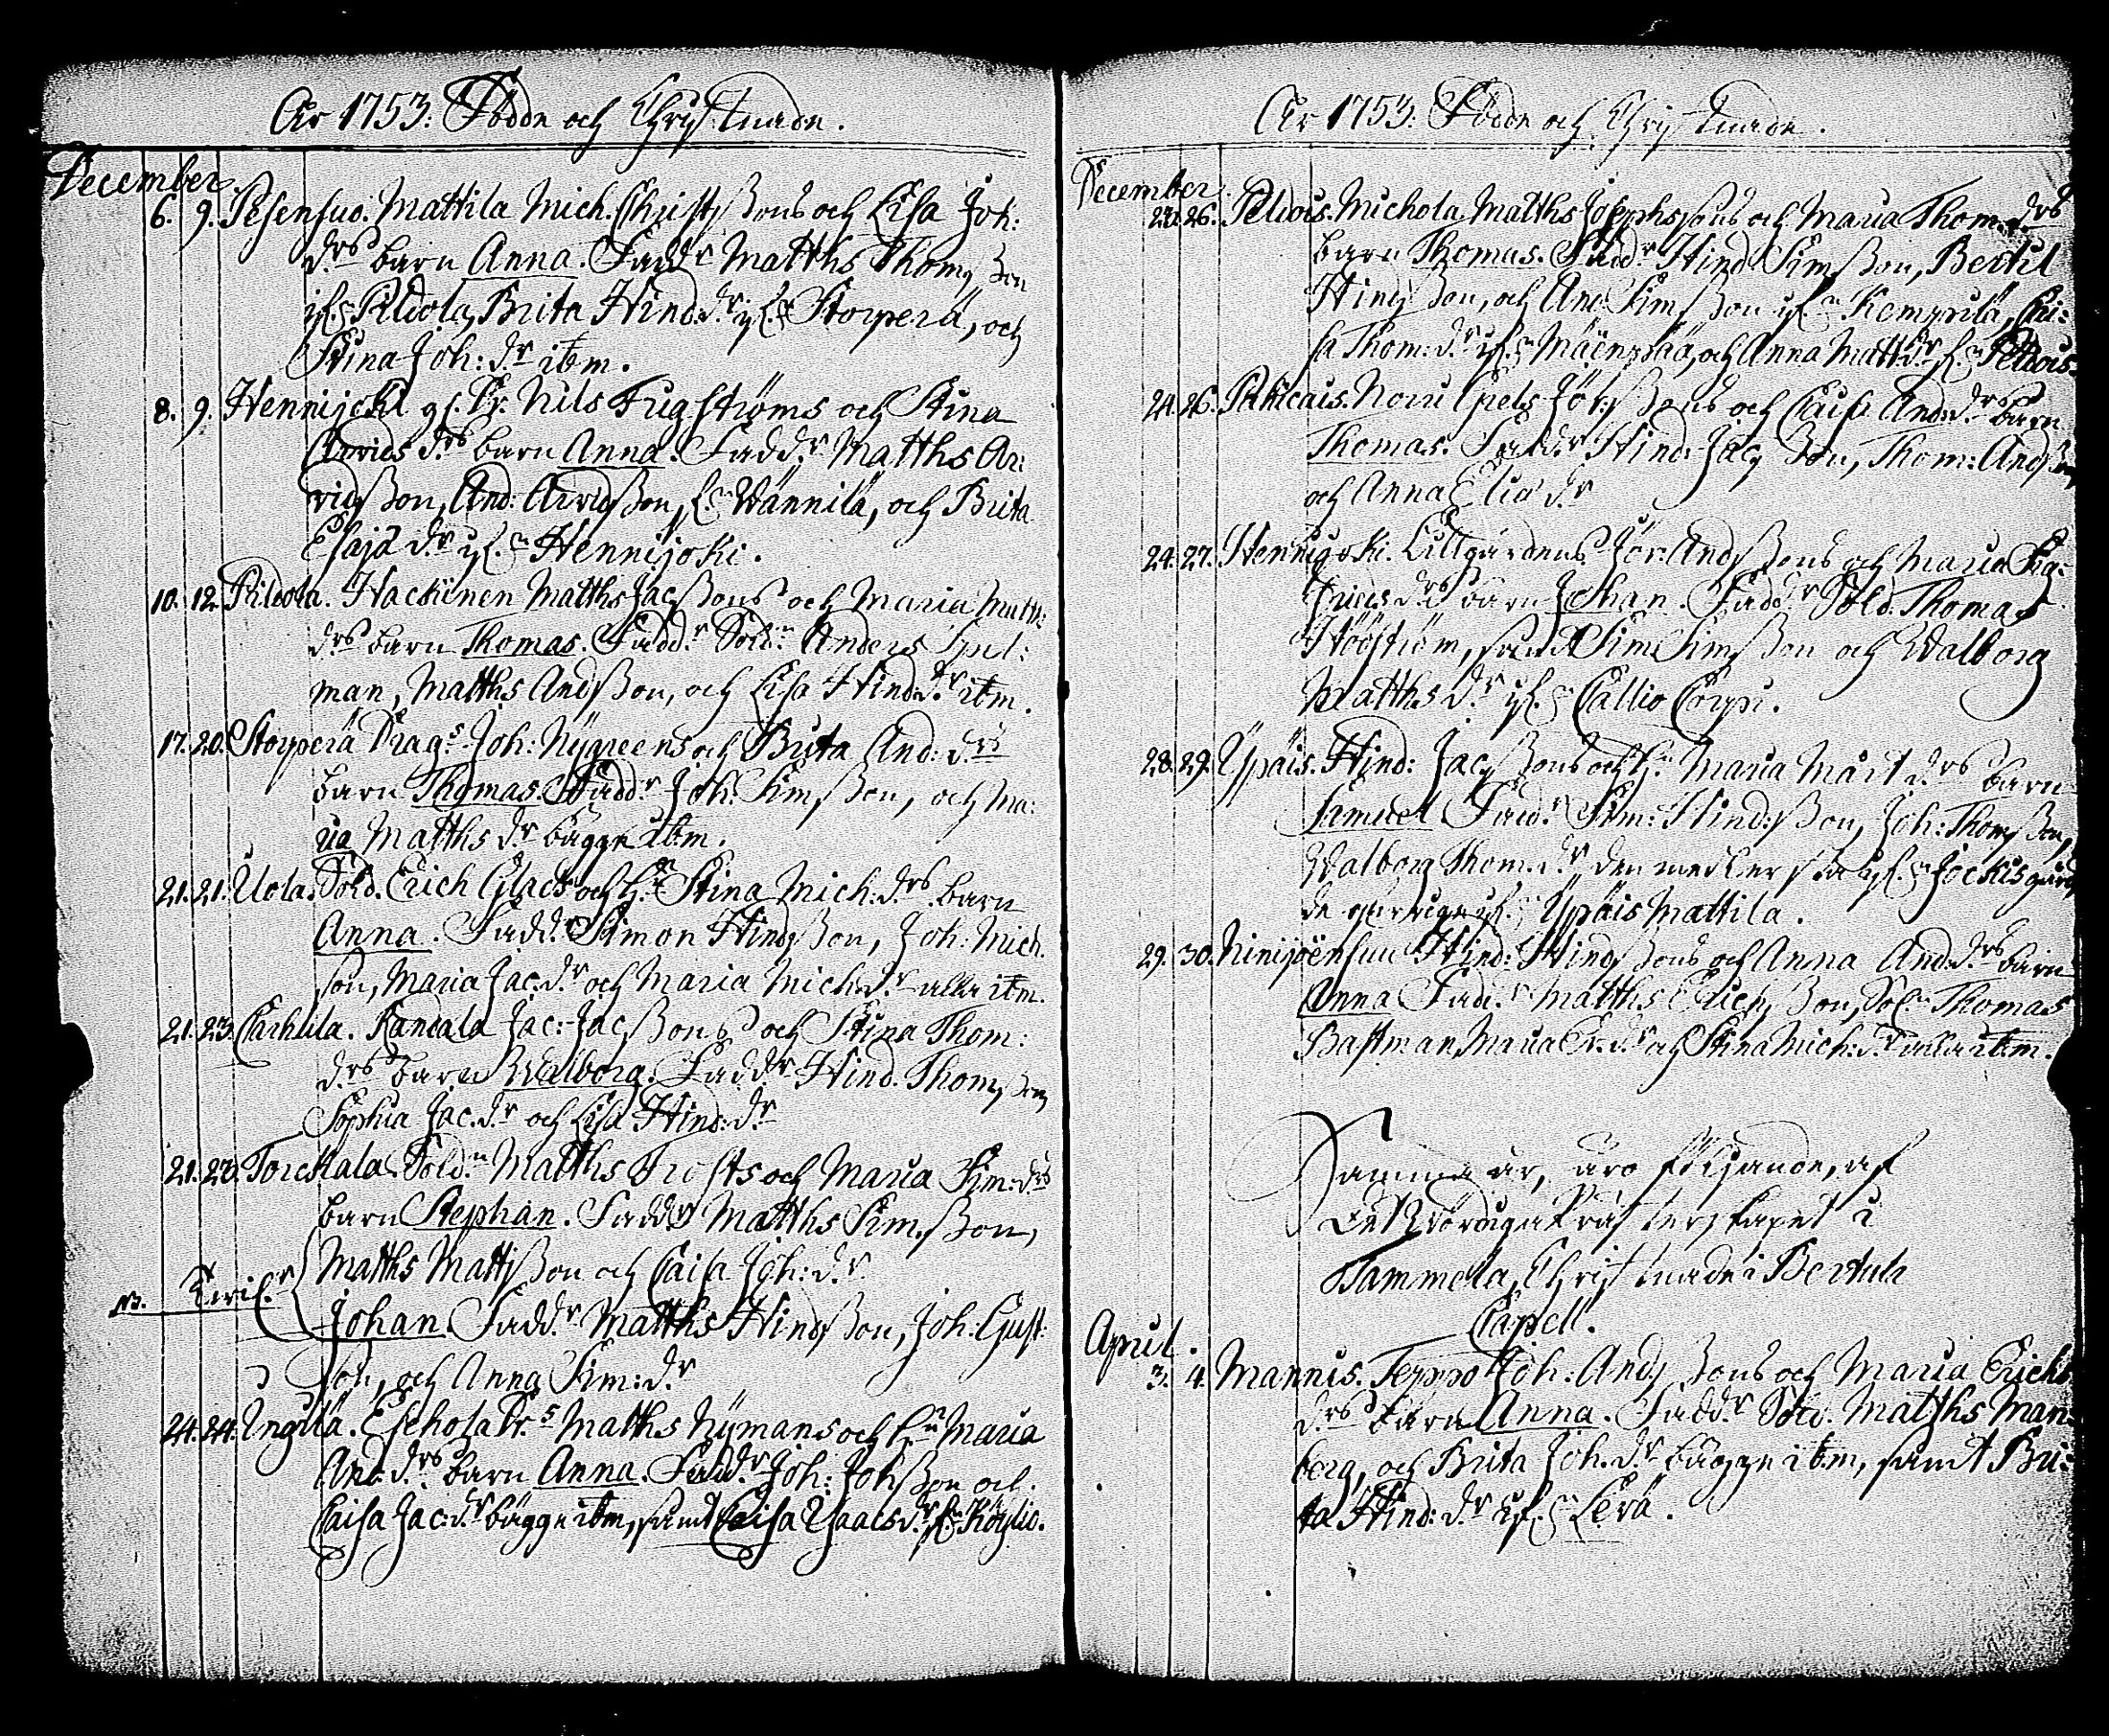 År 1753: Födde och Christnade.
December
6. 9. Pesensuo. Mattila Mich. Christsßons och Lisa Joh:
drs barn Anna. Faddr Matths Thomsßon
ifrn Pildola, Brita Hind: dr ifrn Storperä, och
Stina Joh: dr itm.
8. 9. Hennijoki Dr. Nils Fugströms och Stina
Arvids drs barn Anna. Faddr Matths Ar:
vidsßon, And: Arvidsßon, fn Wännilä, och Brita
Esajæ dr ifn Hennijoki.
10. 12. Pildola. Hackinen Matths Jacsßons och Maria Matth:
drs barn Thomas. Faddr Soldn Anders Spel:
man, Matths Andsßon, och Lisa Hind: dr itm.
17. 20. Storperä Drags Joh: Nygreens och Brita And: drs
barn Thomas. Faddr Joh: Simsßon, och Ma:
ria Matths dr bägge itm.
21. 21. Uola. Sold. Erich Glads och h:n Stina Mich: drs barn
Anna. Faddr Simon Hindsßon, Joh: Mich:
son, Maria Jac: dr och Maria Mich: dr alla itm.
21. 23. Carhula. Randala Jac: Jacsßons och Stina Thom:
drs barn Walborg. Faddr Hind. Thomsßon
Sophia Jac. dr och Lisa Hind: dr
21. 23. Torckala. Soldn Matths Frosts och Maria Sim: drs
barn Stephan. Faddr Matths Simsßon,
Matths Mattsßon och Caisa Joh: dr
NB.
Johan. Faddr Matths Hindsßon, Joh: Gust:
son, och Anna Sim: dr
24. 24. Ingilä. Eschola Drs Matths Nymans och h:n Maria
And: drs barn Anna. Faddr Joh: Johsßon och
Caisa Jac: dr bägge itm, samt Caisa Isaacs dr fn Köylio.
År 1753: Födde och Christnade.
December
26. Peldois. Michola Matths Josephssons och Maria Thom: drs
barn Thomas. Faddr Hind Simsßon, Bertil
Hindsßon, och And Simsßon ifn Kemppilä, Cai:
sa Thom: dr ifn Mäenpää, och Anna Matt: dr fn Peldois.
24. 26. Jör: sßons och Caisa And: drs barn
Thomas. Faddr Hind: Jacsßon, Thom: Andsßon
och Anna Eliæ dr
24. 27. Hennijoki. Lillgårdens Jör: Andsßons och Maria
drs barn Johan. Faddr Sold. Thomas
Höström, samt Sim Simsßon och Walborg
Matths dr ifn Callio Corpi.
28. 29. Ypäis. Hind: Jacsßons och h:n Maria Mårt drs barn
Samuel Faddr Sim: Hindsßon, Joh: Thomsßon,
Walborg Thom. dr den medlersta ifn Jockis gård,
de öfrige ifn Ypäis Mattila.
29. 30. Ninijoensuu Hind: Hindsßons och Anna And: drs barn
Anna Faddr Matths Erichsßon, Soln Thomas
Bastman, Maria Er: dr och Stina Mich: dr alla itm.
Samma år, äro följande, af
Det Wördiga Prästerskapet i
Tammela, Christnade i Bertula
Capell.
April.
3. 4. Mannis. Teppo Joh: Andsßons och Maria Erichs
drs barn Anna. Faddr Sold. Matths Man:
berg, och Brita Joh. dr bägge itm, samt Bri:
ta Hind: dr ifn Lerä.